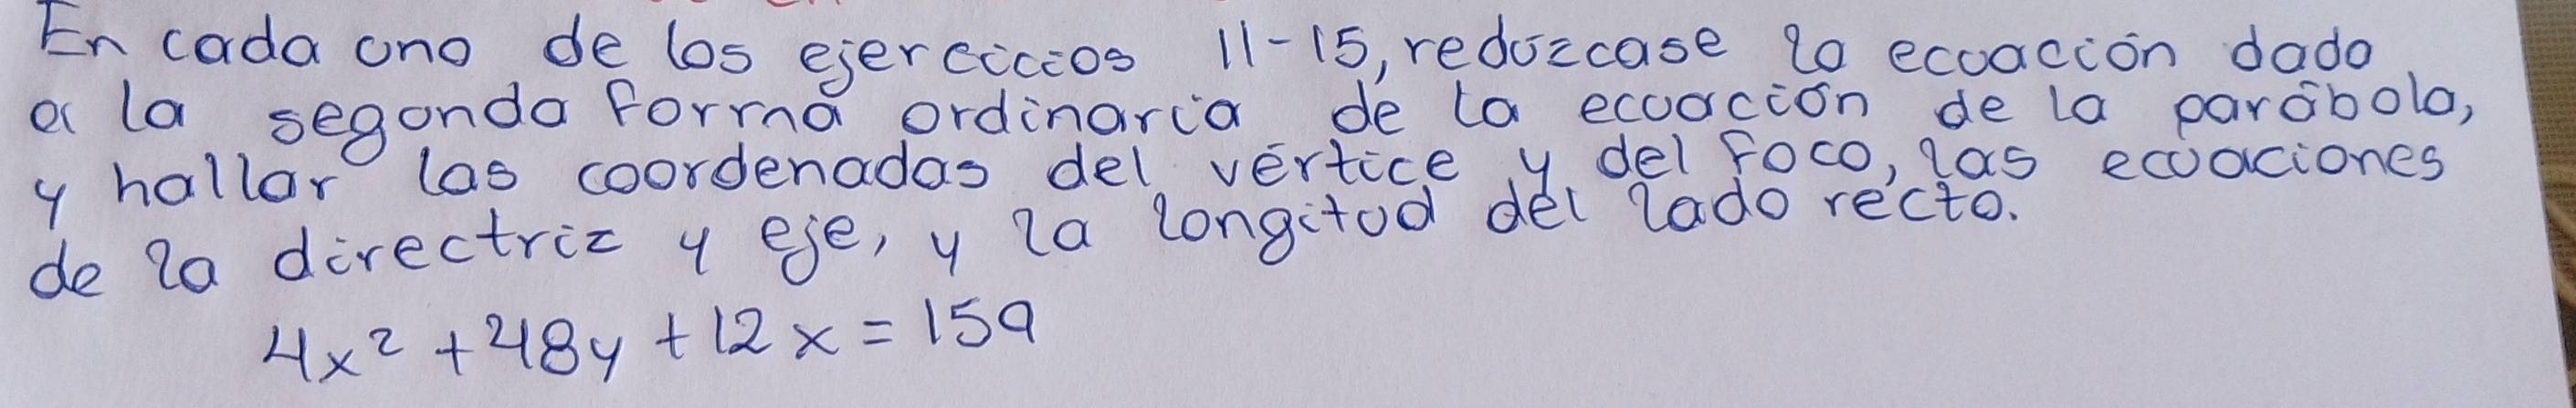 En cada uno de los ejercicios 11-15, redúzcase la ecuación dada
a la segunda forma ordinaria de la ecuación de la parábola,
y hallar las coordenadas del vértice y del foco, las ecuaciones
de la directriz y eje, y la longitud del lado recto.
4x² + 48y + 12x = 159